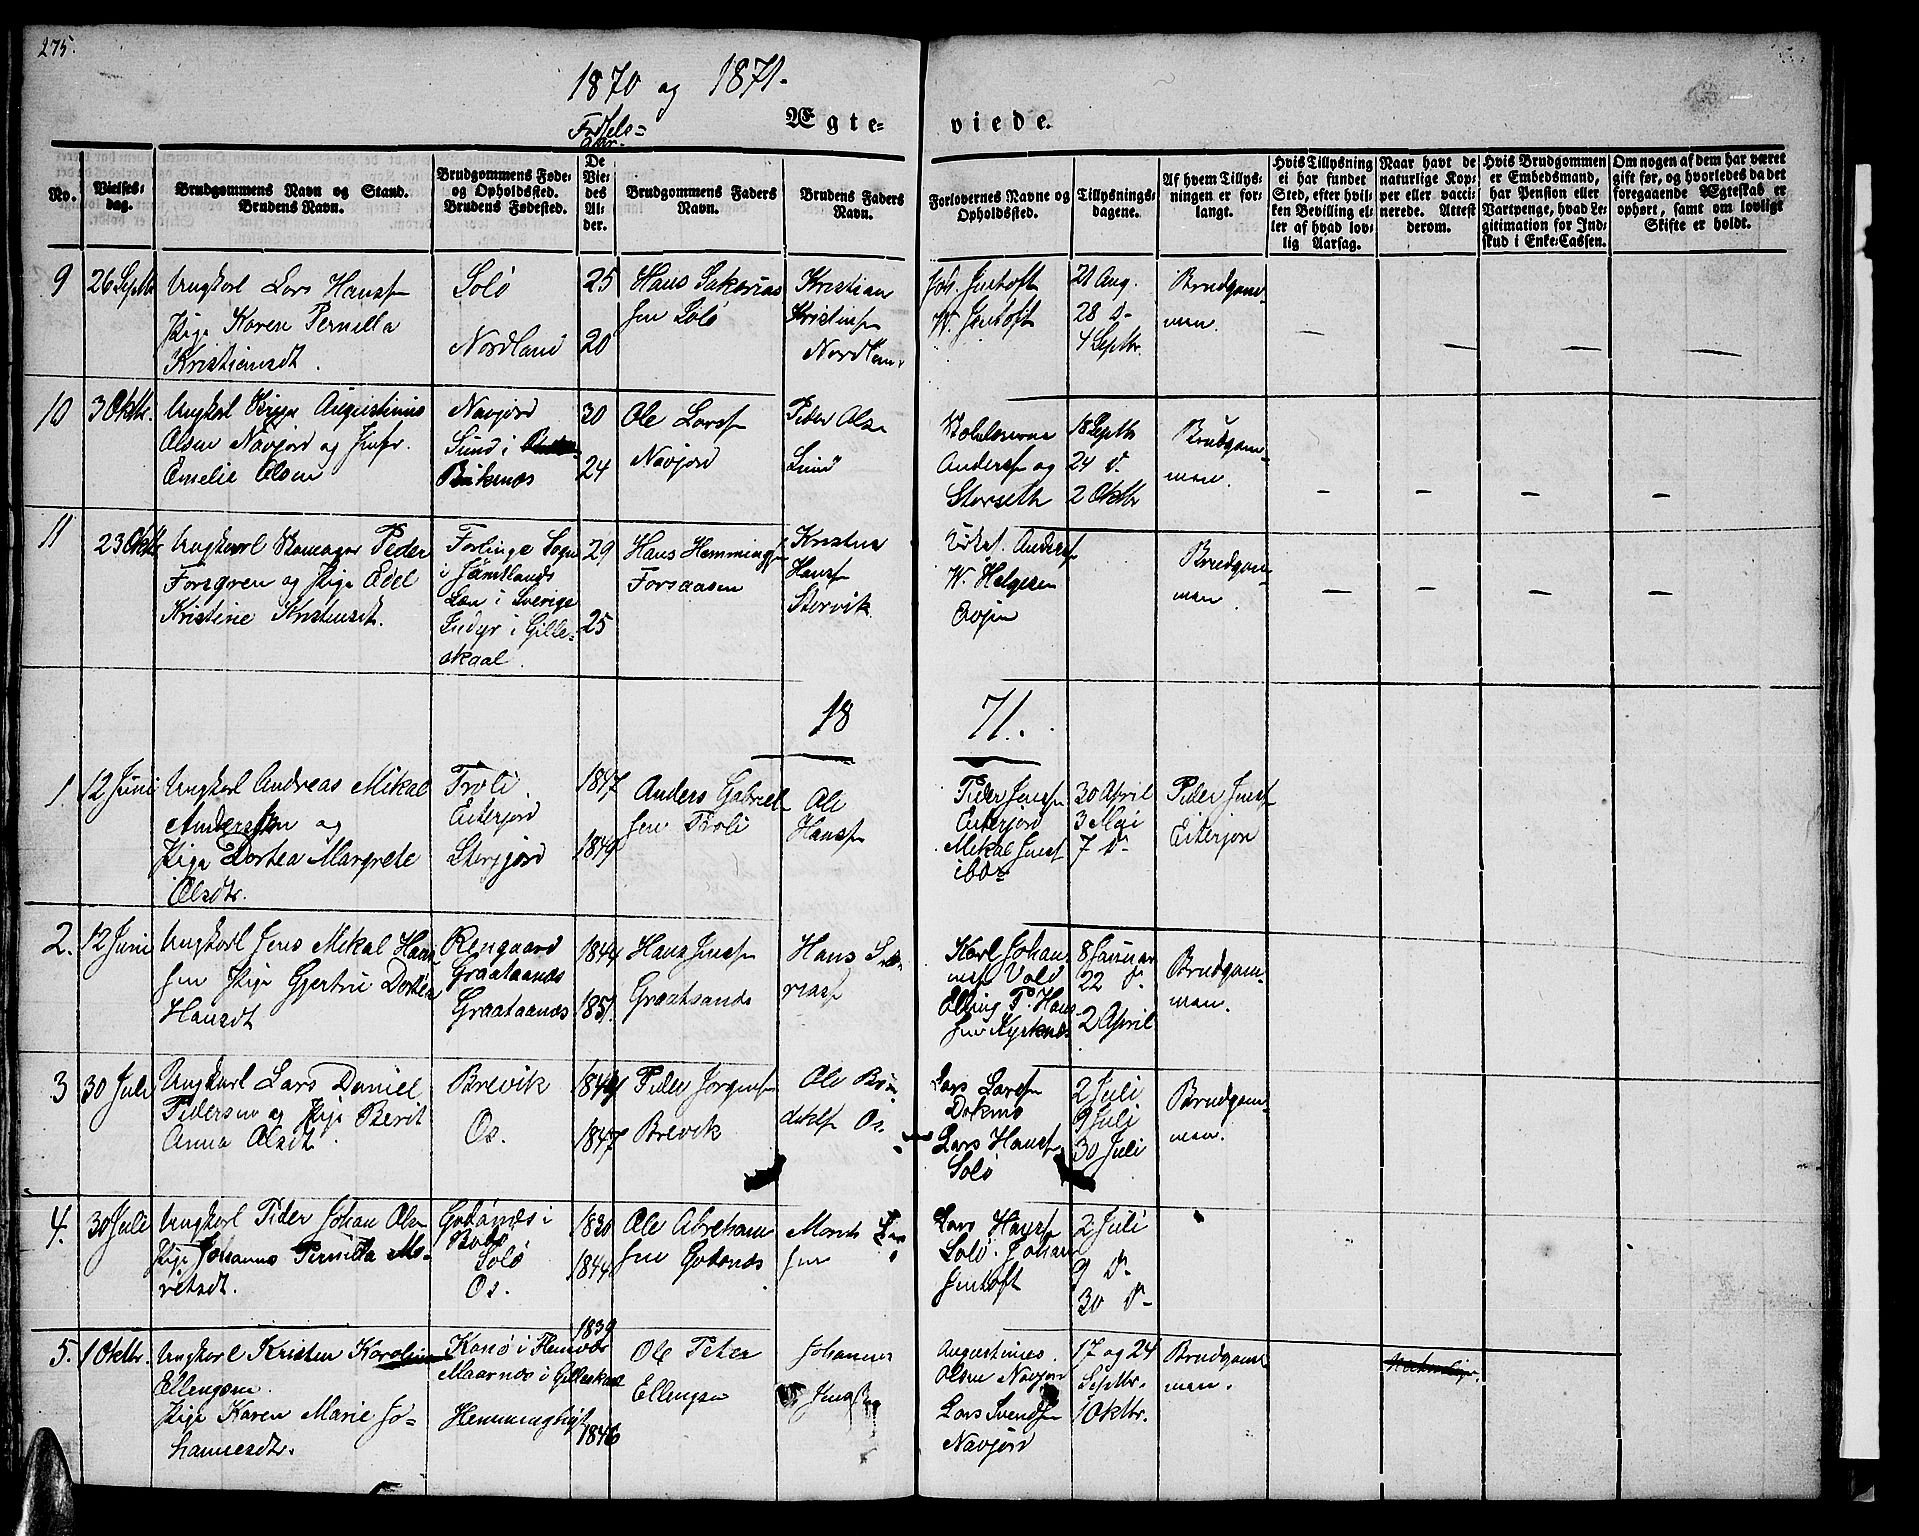 275.
1870 og 1871.
Ægteviede.
Fødsels-
Aar.
No.
Vielsesdag.
Brudgommens Navn og Stand.
Brudens Navn.
Brudgommens Føde- og Opholdssted.
Brudens Fødested.
De Viedes Alder.
Brudgommens Faders Navn.
Brudens Faders Navn.
Forlovernes Navne og Opholdssted.
Tillysningsdagene.
Af hvem Tillysningen er forlangt.
Hvis Tillysning ei har fundet Sted, efter hvilken Bevilling eller af hvad lovlig Aarsag.
Naar havt de naturlige Kopper eller vaccinerede. Attest derom.
Hvis Brudgommen er Embedsmand, har Pension eller Vartpenge, hvad Legitimation for Indskud i Enke-Cassen.
Om nogen af dem har været gift før, og hvorledes da det foregaaende Ægteskab er ophørt, samt om lovligt Skifte er holdt.
9
26 Septbr
Ungkarl Lars Hansen
Pige Karen Pernilla
Kristiansdt.
Solø
Nordland
25
20
Hans Sakarias
sen Solø
Kristian
Kristens
Nordlan
Joh. Jentoft
W. Jentoft
21 Aug.
28 d-
4 Septbr.
Brudgom-
men.
10
3 Oktbr.
Augustinus
Olsen Navjord og Jmfr.
Emelie Olsen
Navjord
Sund i
Buksnæs
30
24
Ole Larsen
Navjord
Peder Olse
Sund
Anders og
Storseth
18 Septbr
24 d.
2 Oktbr
Brudgom-
men.
11
23 Oktbr
Ungkarl Peder
Forsgren og Pige Edel
Kristine Kristensdt.
Forlinge Sogn
i Jämtlands
Len i Sverige
Indyr i Gille-
skaal.
29
25
Hans Hemmings
Forsaasen
Kristen
Hans
Storvik
Anders
W. Helgesen
Brudgom-
men.
18 71.
1.
12 Juni
Ungkarl Andreas Mikal
Andersen og
Pige Dortea Margrete
Olsdtr.
Troli
Eiterjord
Storjord
1847
1849
Anders Gabriel-
sen Troli
Ole
Hans
Peder Jens
Eiterjord
Mikal Jens
ibdr
30 April
3 Mai
7 d-
Peder Jens
Eiterjor
2.
12 Juni
Ungkarl Jens Mikal Han-
sen Pige Gjertru Dortea
Hansdt
Rengaard
Graataanæs
Graataanæs
1844
1851.
Hans Jens
Graatsands
Hans
Karl Johan
Vold
Elling P. Han-
sen
8 Januar
22 d-
2 April
Brudgom-
men.
3
30 Juli
Ungkarl Lars Daniel
Pedersen og Pige Berit
Anna Olsdt.
Brevik
Os.
1847
Peder Jørgens
Brevik
Ole
Os
Lars Larsen
Dokmo
Lars Hans
Solø
2 Juli
9 Juli
30 Juli
Brudgom-
men.
4.
30 Juli
Ungkarl Peder Johan Olsen
Pige Johanna Pernilla Mo-
retsdt.
Godønæs i
Bodø
Solø
Os.
1830
1844
Ole Abraham
sen Godønæs
sen
Lars Hans
Solø. Johan
Jentoft
2 Juli
9 d-
30 d-
5.
1 Oktbr.
Ungkarl Kristen Karolius
Ellengsen.
Pige Karen Marie Jo-
hannesdtr.
Maarnes i Gilleskaal
1839
1846
Ole Peter
Ellengsen
Johannes
Augustinus
Olsen Navjord
Lars Svends
Navjord
17 og 24
Septbr.
1 Oktbr.
Brudgom-
men.